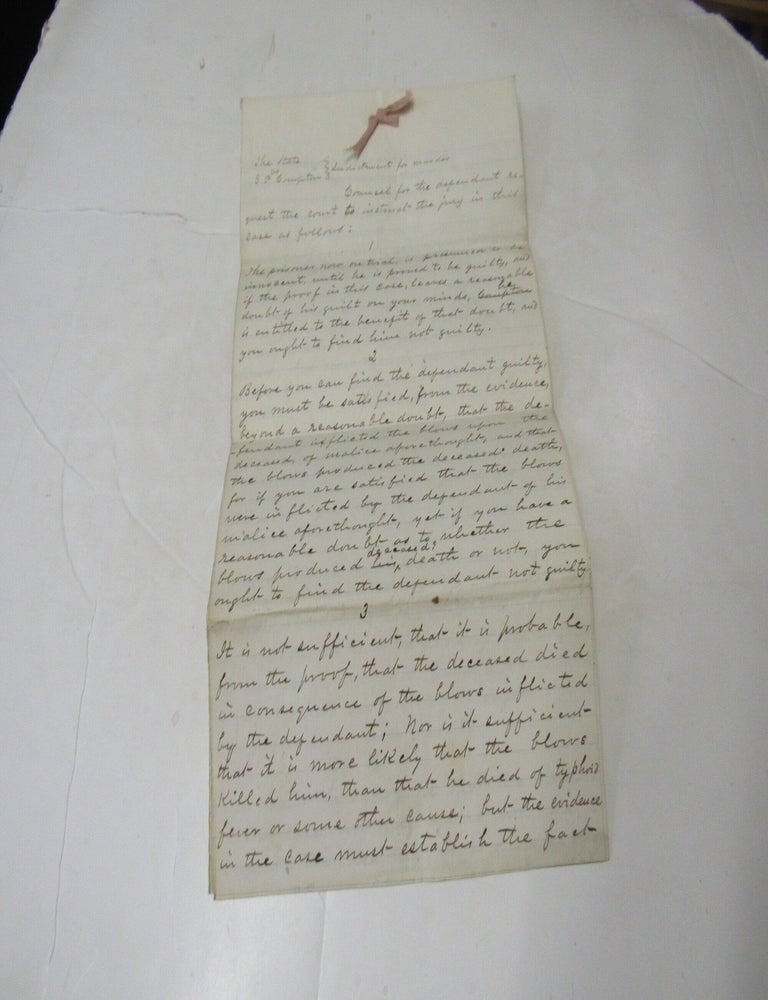 The State
vs Compton } Indictment for murder
Counsel for the defendant re-
quest the court to instruct the jury in this
case as follows:
1
The prisoner now on trial, is presumed to be
innocent, until he is proved to be guilty, and
if the proof in this case, leaves a reasonable
doubt of his guilt on your minds, Compton he
is entitled to the benefit of that doubt, and
you ought to find him not guilty.
2
Before you can find the defendant guilty,
you must be satisfied, from the evidence,
beyond a reasonable doubt, that the de-
-fendant inflicted the blows upon the
deceased, of malice aforethought, and that
the blows produced the deceased's death,
for if you are satisfied that the blows
were inflicted by the defendant of his
malice aforethought, yet if you have a
reasonable doubt as to whether the
blows produced his deceased's death or not, you
ought to find the defendant not guilty
3
It is not sufficient, that it is probable,
from the proof, that the deceased died
in consequence of the blows inflicted
by the defendant; Nor is it sufficient
that it is more likely that the blows
killed him, than that he died of typhoid
fever or some other cause; but the evidence
in the case must establish the fact